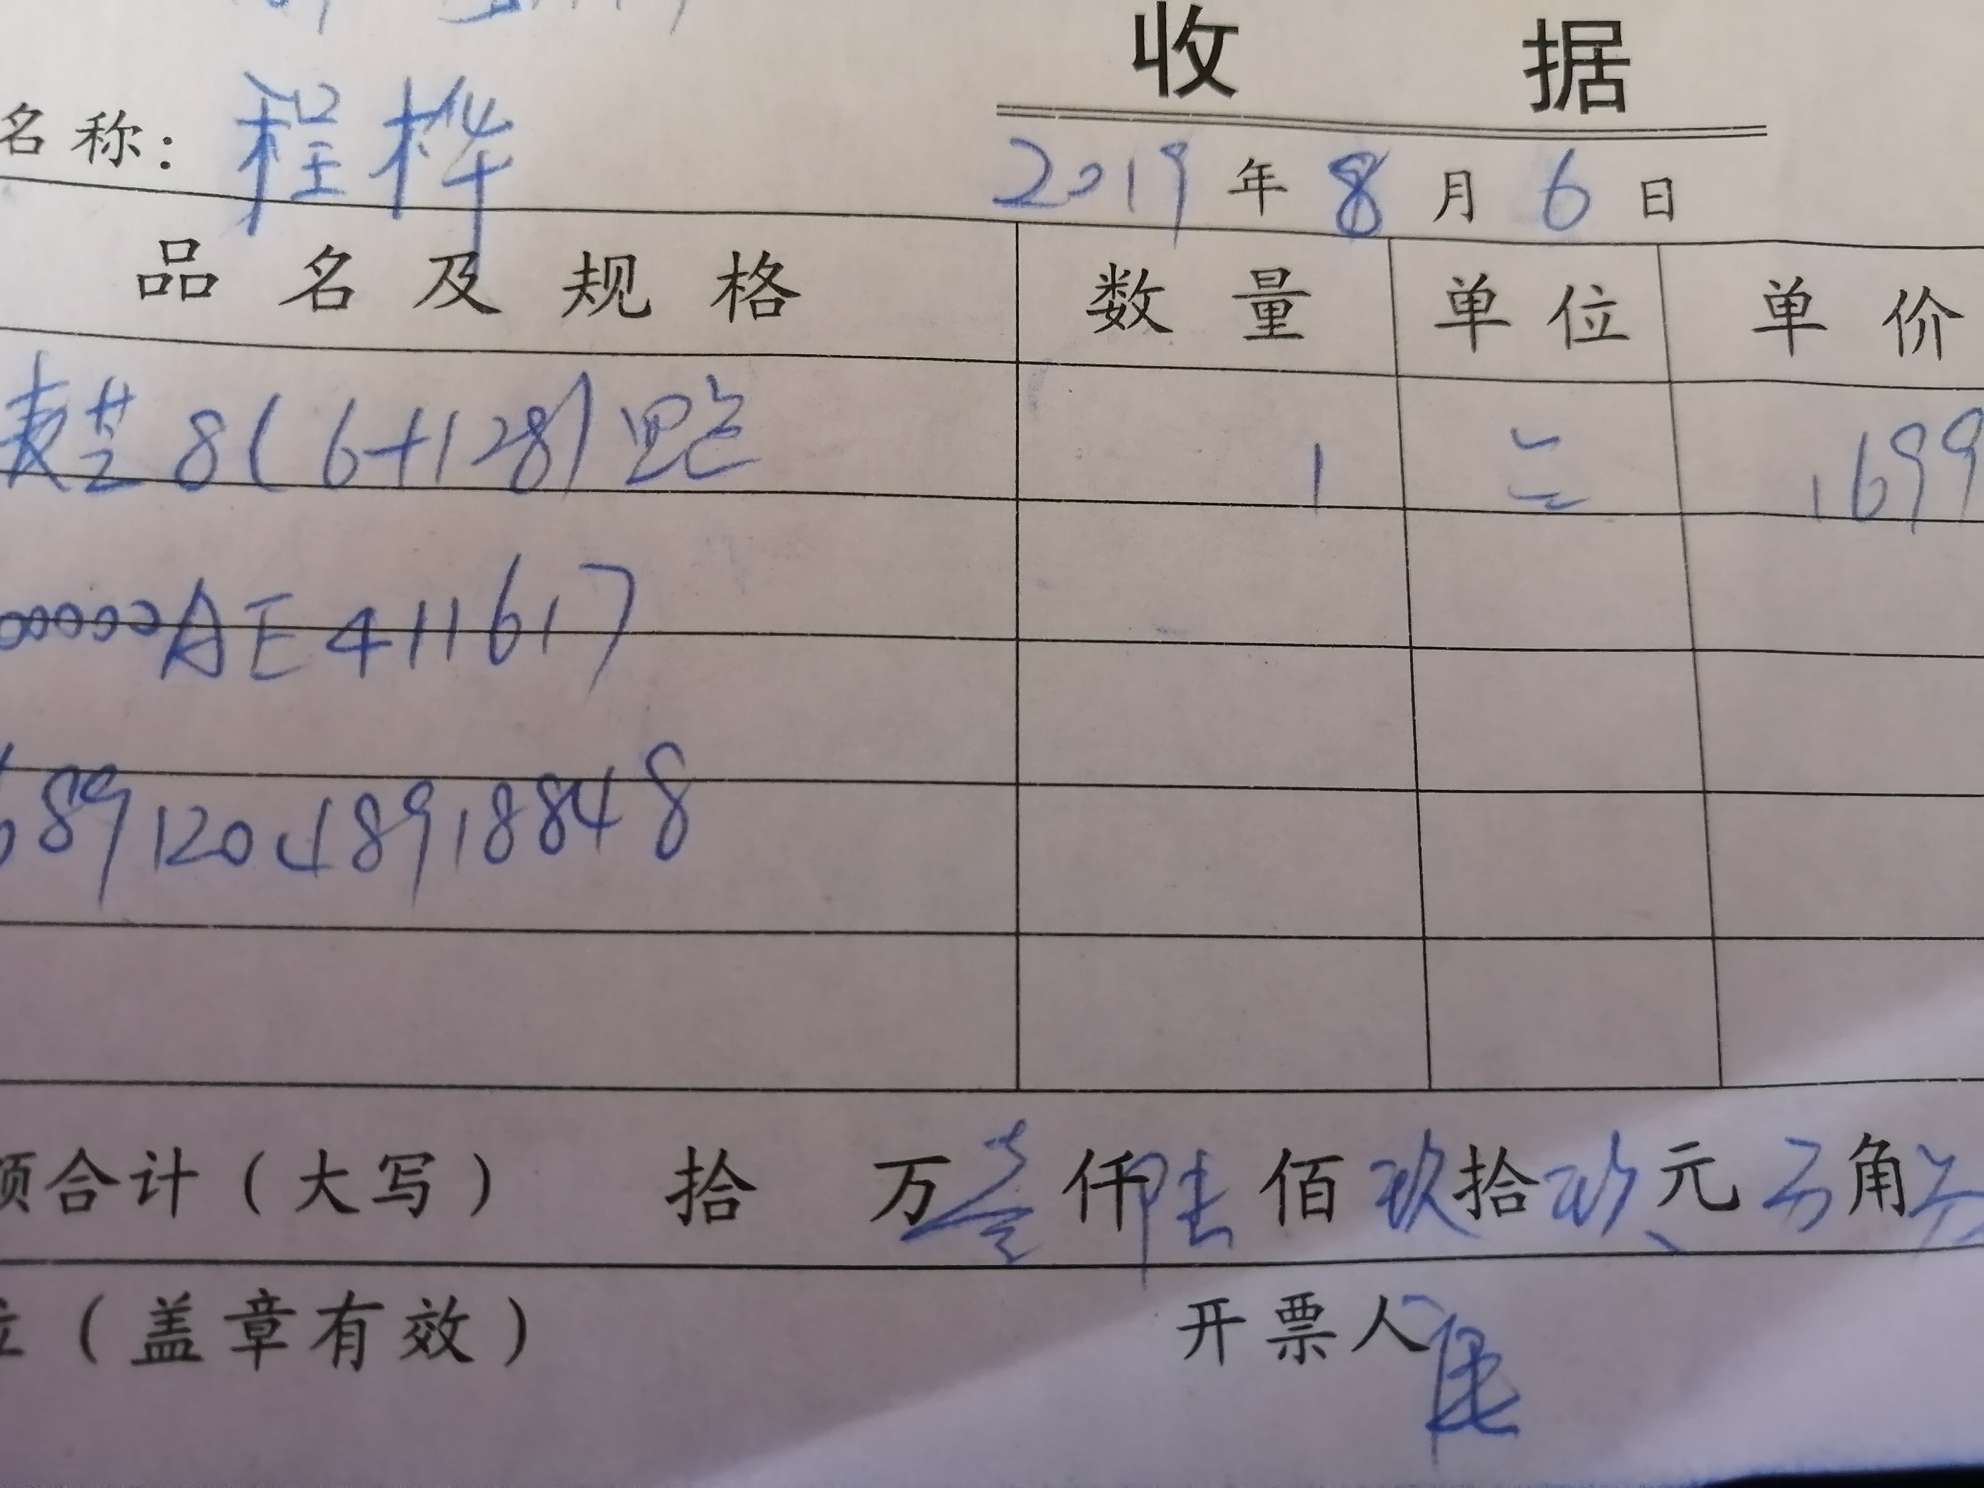 收 据
名称: 程桦
2019 年 8 月 6 日
品名及规格 数量 单位 单价
麦芒8(6+128) 1 1699
00000AE411617
68912048918848
额合计(大写) 拾 万壹仟陆佰玖拾玖元 角
(盖章有效) 开票人